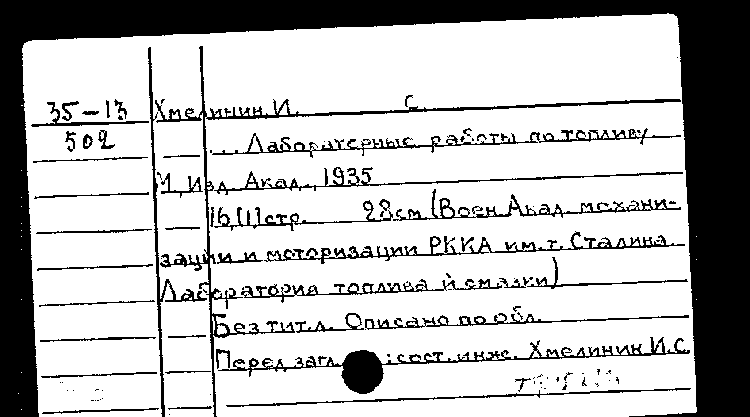 35-13 Хмелинин, И. С.
502 ... Лабораторные работы по топливу
М, Изд. Акад., 1935
16,[1] стр. 28 см (Воен. Акад. механи-
зации и моторизации РККА им. т. Сталина.
Лаборатория топлива и смазки)
Без тит. л. Описано по обл.
Перед загл. : сост. инж. Хмелинин И.С.